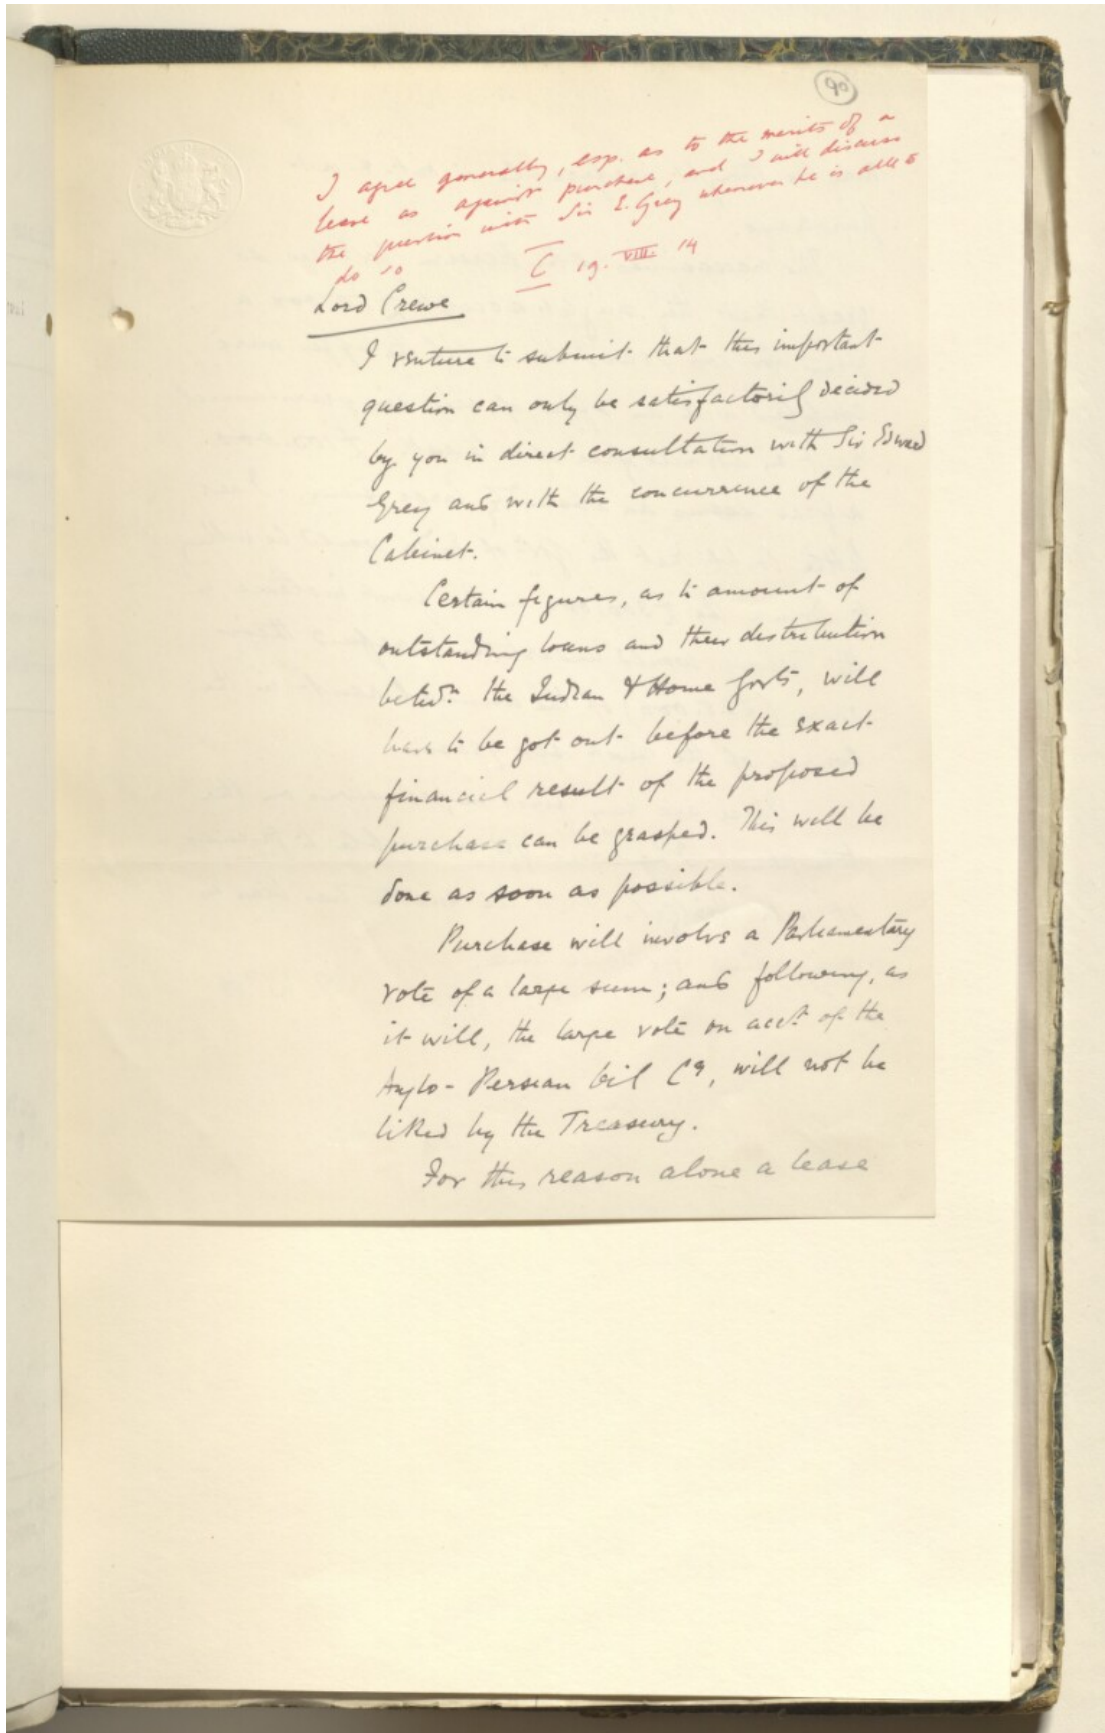 90
I agree generally, esp. as to the merits of a
lease as against purchase, and I will discuss
the question with Sir E. Grey whenever he is able to
do so
C 19. VIII 14
Lord Crewe
I venture to submit that this important
question can only be satisfactorily decided
by you in direct consultation with Sir Edward
Grey and with the concurrence of the
Cabinet.
Certain figures, as to amount of
outstanding loans and their distribution
betwn. the Indian & Home Govts, will
have to be got out before the exact
financial result of the proposed
purchase can be grasped. This will be
done as soon as possible.
Purchase will involve a Parliamentary
vote of a large sum; and following, as
it will, the large vote on acct. of the
Anglo-Persian Oil Co, will not be
liked by the Treasury.
For this reason alone a lease